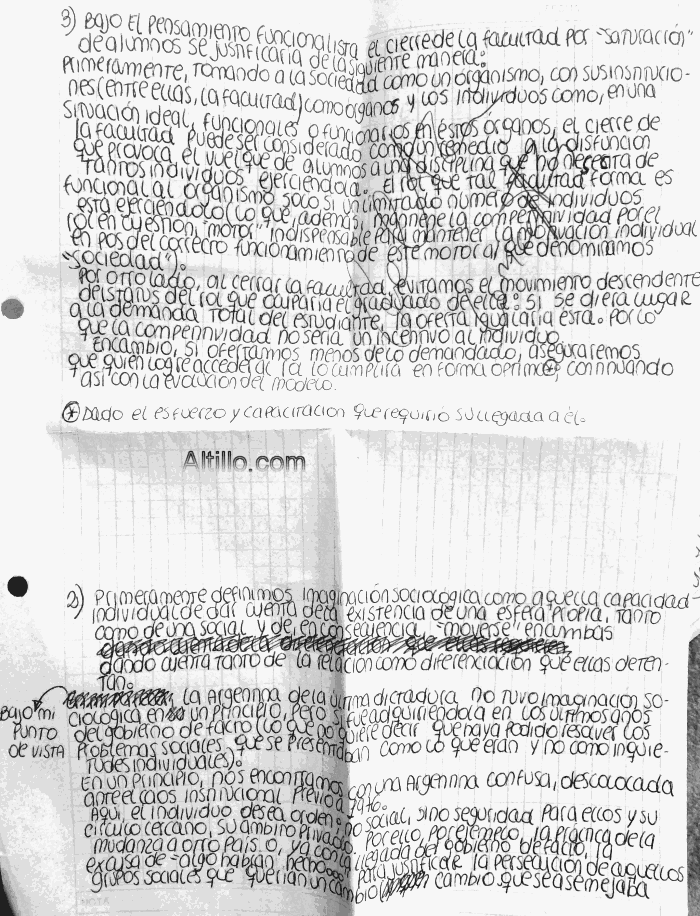 3) Bajo el pensamiento funcionalista el cierre de la facultad por "saturación"
de alumnos se justificaría de la siguiente manera:
Primeramente, tomando a la sociedad como un organismo, con sus institucio-
nes (entre ellas, la facultad) como órganos y los individuos como, en una
situación ideal, funcionales o funcionarios en éstos órganos, el cierre de
la facultad puede ser considerado como un remedio a la disfunción
que provoca el vuelque de alumnos a una disciplina que no necesita de
tantos individuos ejerciéndola. El rol que tal facultad forma es
funcional al organismo solo si un limitado numero de individuos
está ejerciéndolo (lo que, además, mantiene la competitividad por el
rol en cuestión, "motor" indispensable para mantener la motivación individual
en pos del correcto funcionamiento de este motor al que denominamos
"sociedad").
Por otro lado, al cerrar la facultad, evitamos el movimiento descendente
del status del rol que ocuparía el graduado de ella: si se diera lugar
a la demanda total del estudiante, la oferta igualaría ésta. Por lo
que la competitividad no sería un incentivo al individuo.
En cambio, si ofertamos menos de lo demandado, aseguraremos
que quien logre acceder al rol lo cumplirá en forma óptima*, continuando
así con la evolución del modelo.
* Dado el esfuerzo y capacitación que requirió su llegada a él.
Altillo.com
2) Primeramente definimos imaginación sociológica como aquella capacidad
individual de dar cuenta de la existencia de una esfera propia, tanto
como de una social y de, en consecuencia, "moverse" en ambas
dando cuenta tanto de la relación como diferenciación que ellas deten-
tan.
Bajo mi punto de vista
la Argentina de la última dictadura no tuvo imaginación so-
ciológica en un principio, pero si fue adquiriéndola en los últimos años
del gobierno de facto (lo que no quiere decir que haya podido resolver los
problemas sociales que se presentaban como lo que eran y no como inquie-
tudes individuales).
En un principio, nos encontramos con una Argentina confusa, descolocada
ante el caos institucional previo a
Aquí, el individuo desea orden no social, sino seguridad para ellos y su
circulo cercano, su ámbito privado. Por ello, por ejemplo, la práctica de la
mudanza a otro país o, ya con la llegada del gobierno de facto, la
excusa de "algo habrán hecho" para justificar la persecución de aquellos
grupos sociales que querían un cambio cambio que se asemejaba